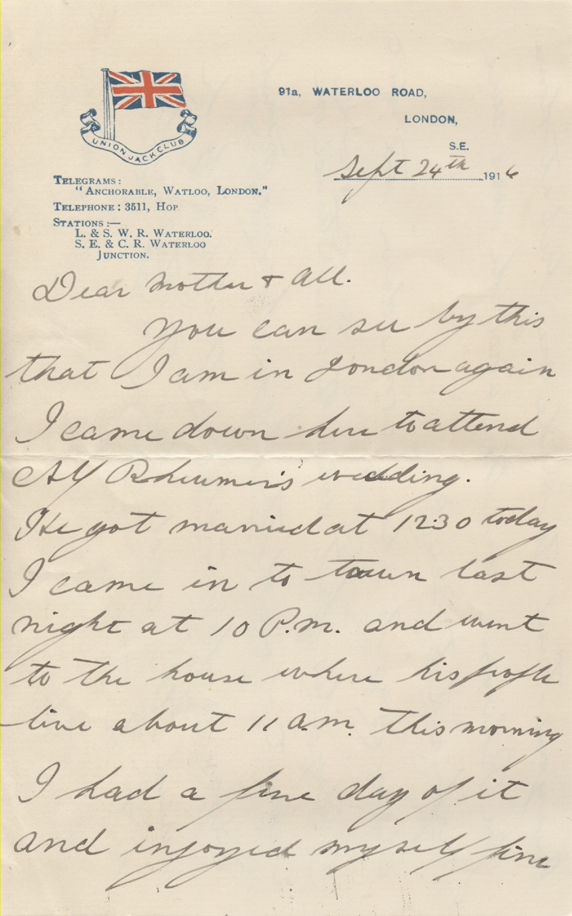 UNION JACK CLUB
91a, WATERLOO ROAD,
LONDON,
S.E.
Sept 24th 1916
TELEGRAMS:
"ANCHORABLE, WATLOO, LONDON."
TELEPHONE: 3511, HOP
STATIONS:—
L. & S. W. R. WATERLOO.
S. E. & C. R. WATERLOO
JUNCTION.
Dear Mother & All.
You can see by this
that I am in London again
I came down here to attend
Alf wedding.
He got married at 12:30 today
I came in to town last
night at 10 P.m. and went
to the house where his people
live about 11 a.m. this morning
I had a fine day of it
and injoyed myself fine